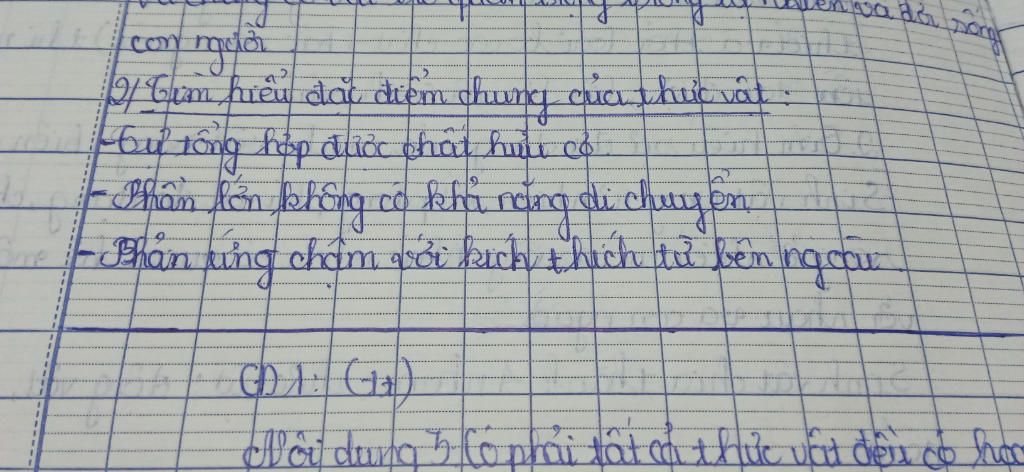 và đời sống
con người
2) Tìm hiểu đặc điểm chung của thực vật:
- Tự tổng hợp được chất hữu cơ
- Phần lớn không có khả năng di chuyển
- Phản ứng chậm với kích thích từ bên ngoài.
CĐ 1: (T7)
Nội dung 3: Có phải tất cả thực vật đều có hoa